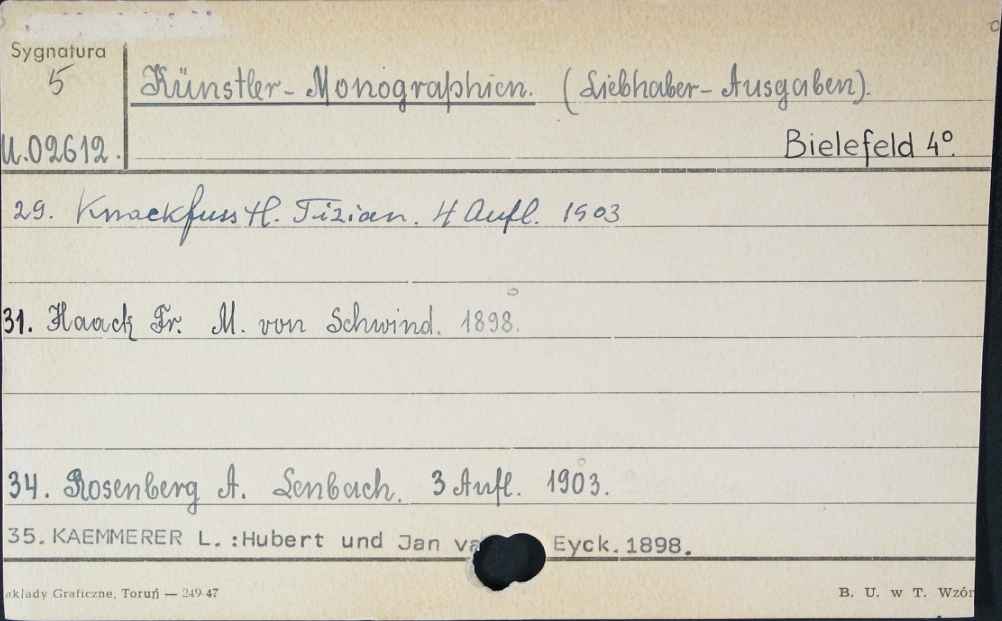 Sygnatura
5
Künstler-Monographien. (Liebhaber-Ausgaben).
U.02612.
Bielefeld 4°.
29. Knackfuss H. Tizian. 4 Aufl. 1903
31. Haack Fr. M. von Schwind. 1898.
34. Rosenberg A. Lenbach. 3 Aufl. 1903.
35. KAEMMERER L.:Hubert und Jan va Eyck.1898.
akłady Graficzne, Toruń — 249-47
B. U. w T. Wzór